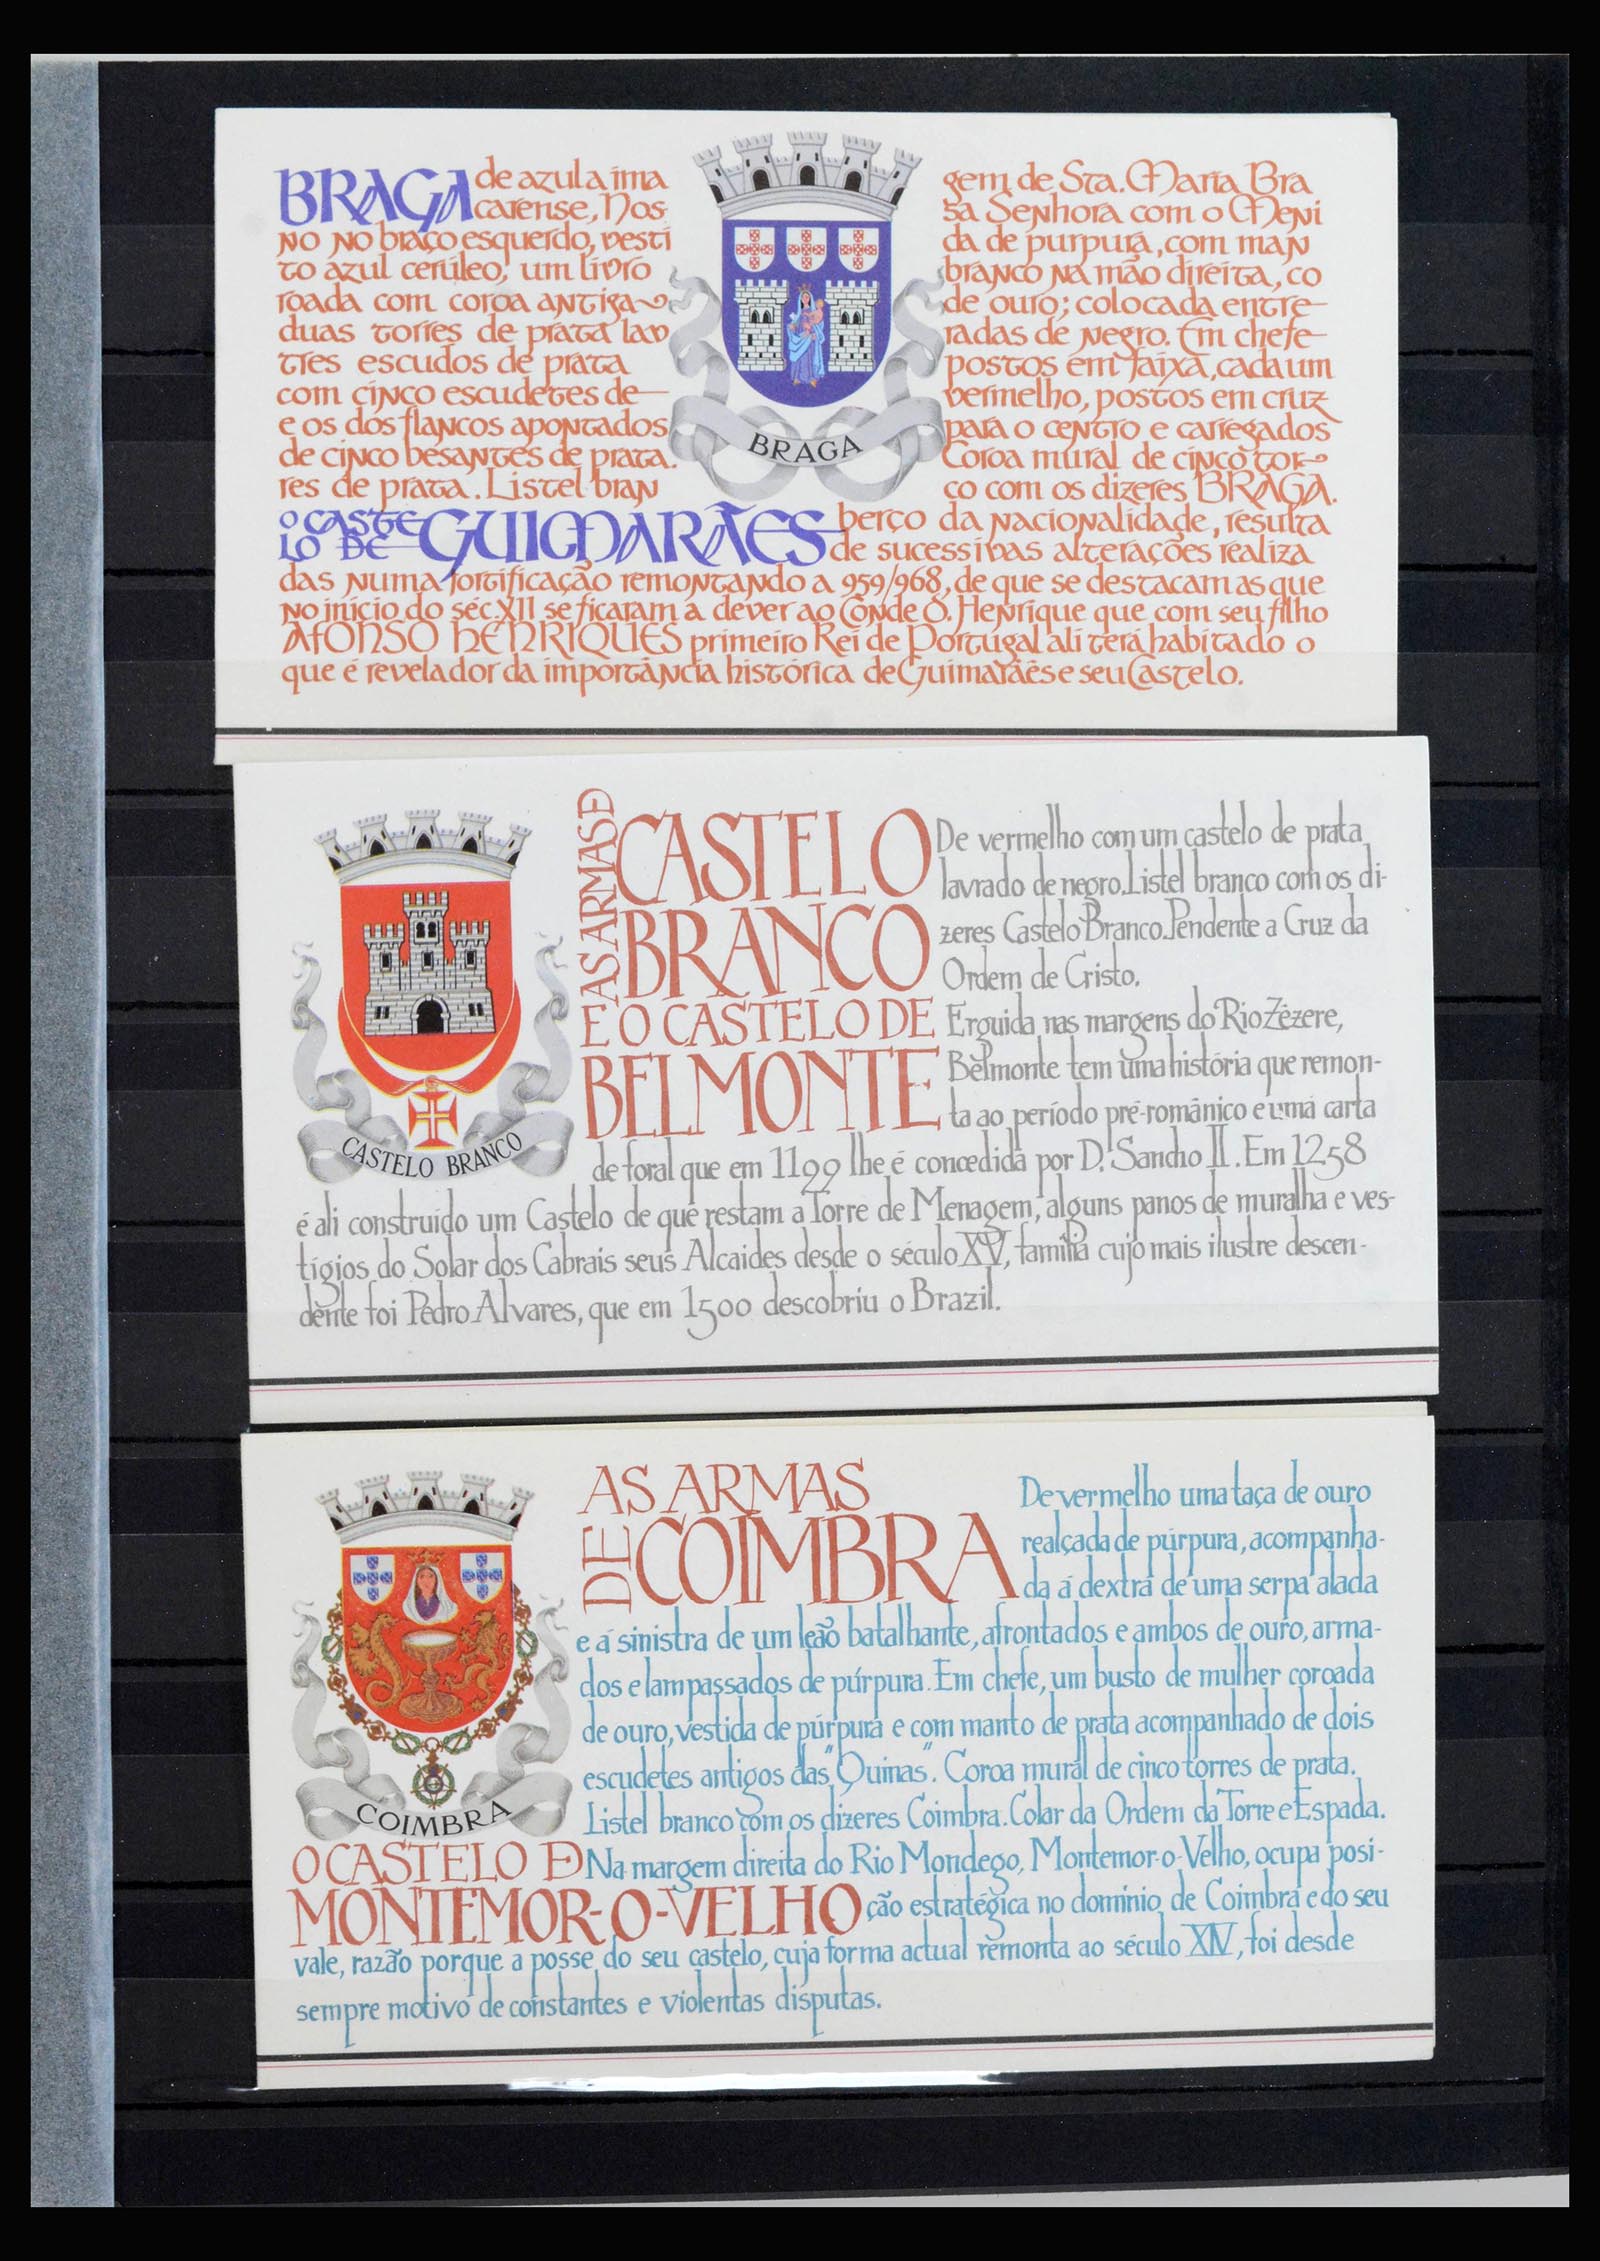 BRAGA de azul a ima gem de Sta. Maria Bra
carense, Nos- sa Senhora com o Meni
no no braço esquerdo, vesti da de purpura, com man
to azul cerúleo, um livro branco na mão direita, co
roada com coroa antiga de ouro; colocada entre
duas torres de prata lav radas de negro. Em chefe
tres escudos de prata postos em faixa, cada um
com cinco escudetes de vermelho, postos em cruz
e os dos flancos apontados para o centro e carregados
de cinco besantes de prata. Coroa mural de cinco tor
res de prata. Listel bran co com os dizeres BRAGA.
BRAGA
O CASTE
LO DE GUIMARÃES berço da nacionalidade, resulta
de sucessivas alterações realiza
das numa fortificação remontando a 959/968, de que se destacam as que
no início do séc. XII se ficaram a dever ao Conde D. Henrique que com seu filho
AFONSO HENRIQUES primeiro Rei de Portugal ali terá habitado o
que é revelador da importância histórica de Guimarães e seu Castelo.
AS ARMAS D
CASTELO
BRANCO
E O CASTELO DE
BELMONTE
De vermelho com um castelo de prata
lavrado de negro. Listel branco com os di-
zeres Castelo Branco. Pendente a Cruz da
Ordem de Cristo.
Erguida nas margens do Rio Zêzere,
Belmonte tem uma história que remon-
ta ao período pré-românico e uma carta
de foral que em 1199 lhe é concedida por D. Sancho II. Em 1258
é ali construído um Castelo de que restam a Torre de Menagem, alguns panos de muralha e ves-
tígios do Solar dos Cabrais seus Alcaides desde o século XV, família cujo mais ilustre descen-
dente foi Pedro Alvares, que em 1500 descobriu o Brazil.
CASTELO BRANCO
AS ARMAS
DE COIMBRA
De vermelho uma taça de ouro
realçada de púrpura, acompanha-
da á dextra de uma serpa alada
e á sinistra de um leão batalhante, afrontados e ambos de ouro, arma-
dos e lampassados de púrpura. Em chefe, um busto de mulher coroada
de ouro, vestida de púrpura e com manto de prata acompanhado de dois
escudetes antigos das "Quinas". Coroa mural de cinco torres de prata.
Listel branco com os dizeres Coimbra. Colar da Ordem da Torre e Espada.
COIMBRA
O CASTELO D Na margem direita do Rio Mondego, Montemor-o-Velho, ocupa posi-
MONTEMOR-O-VELHO ção estratégica no domínio de Coimbra e do seu
vale, razão porque a posse do seu castelo, cuja forma actual remonta ao século XIV, foi desde
sempre motivo de constantes e violentas disputas.